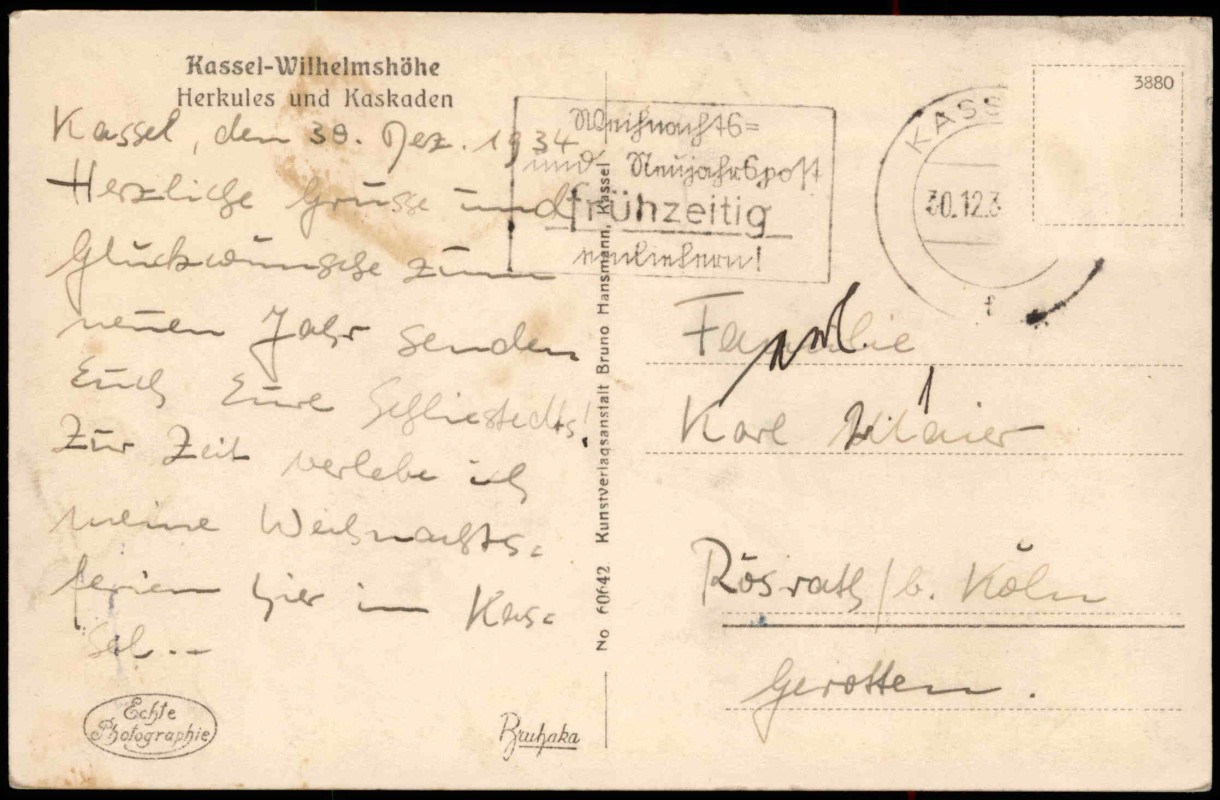 Kassel-Wilhelmshöhe
Herkules und Kaskaden
Kassel, den 30. Dez. 1934
Herzliche Grüsse und
Glückwünsche zum
neuen Jahr senden
Euch Eure
Zur Zeit verlebe ich
meine Weihnachts-
ferien hier in Kas-
sel..
Echte
Photographie
Bruhaka
No 60642 Kunstverlagsanstalt Bruno Hansmann, Kassel
Weihnachts-
und Neujahrspost
frühzeitig
einliefern!
KASS
30.12.3
f
3880
Familie
Karl
Rösrath / b. Köln